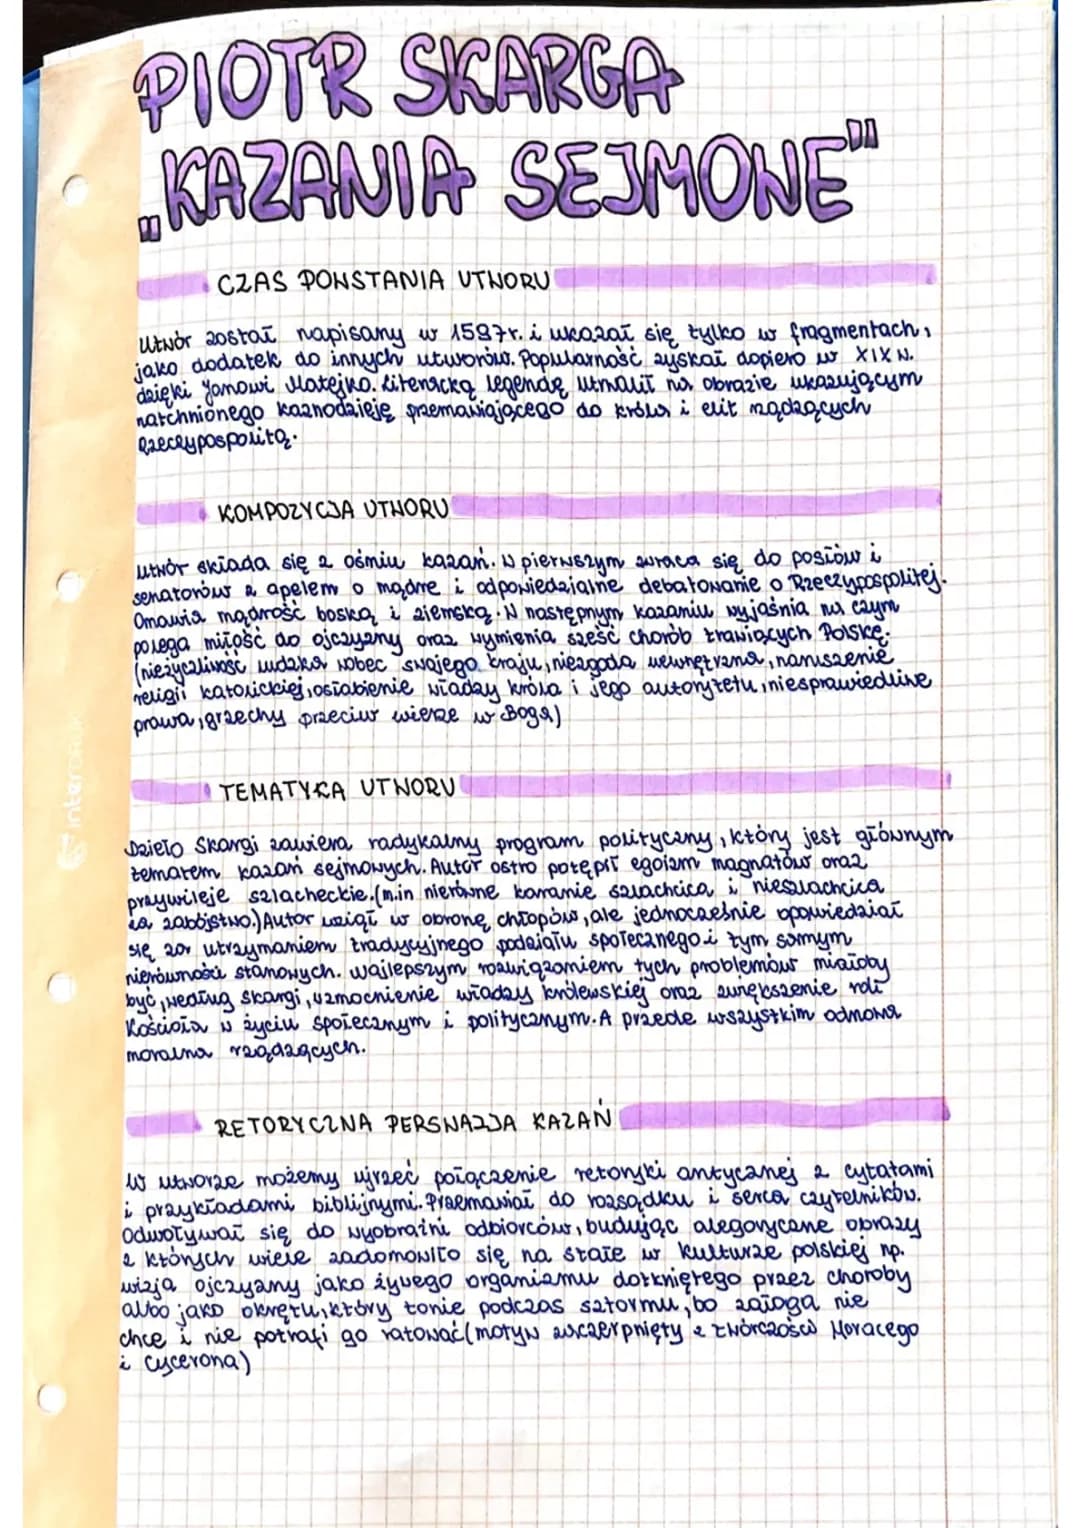 PIOTR SKARGA
„KAZANIA SEJMOWE"
CZAS POWSTANIA UTWORU
Utwór został napisany w 1597r. i ukazał się tylko w fragmentach,
jako dodatek do innych utworów. Popularność zyskał dopiero w XIX w.
dzięki Janowi Matejko. Literacką legendę utrwalił na obrazie ukazującym
natchnionego kaznodzieję przemawiającego do króla i elit rządzących
Rzeczypospolitą.
KOMPOZYCJA UTWORU
Utwór składa się z ośmiu kazań. W pierwszym zwraca się do posłów i
senatorów z apelem o mądre i odpowiedzialne debatowanie o Rzeczypospolitej.
Omawia mądrość boską i ziemską. W następnym kazaniu wyjaśnia na czym
polega miłość do ojczyzny oraz wymienia sześć chorób trawiących Polskę.
(nieżyczliwość ludzka wobec swojego kraju, niezgoda wewnętrzna, naruszenie
religii katolickiej, osłabienie władzy króla i jego autorytetu, niesprawiedliwe
prawa, grzechy przeciw wierze w Boga)
TEMATYKA UTWORU
Dzieło Skargi zawiera radykalny program polityczny, który jest głównym
tematem kazań sejmowych. Autor ostro potępił egoizm magnatów oraz
przywileje szlacheckie. (m.in nierówne karanie szlachcica i nieszlachcica
za zabójstwo.) Autor wziął w obronę chłopów, ale jednocześnie opowiedział
się za utrzymaniem tradycyjnego podziału społecznego i tym samym
nierówności stanowych. Najlepszym rozwiązaniem tych problemów miałoby
być, według Skargi, wzmocnienie władzy królewskiej oraz zwiększenie roli
Kościoła w życiu społecznym i politycznym. A przede wszystkim odnowa
moralna rządzących.
RETORYCZNA PERSWAZJA KAZAŃ
W utworze możemy ujrzeć połączenie retoryki antycznej z cytatami
i przykładami biblijnymi. Przemawiał do rozsądku i serca czytelników.
Odwoływał się do wyobraźni odbiorców, budując alegoryczne obrazy
z których wiele zadomowiło się na stałe w kulturze polskiej np.
wizja ojczyzny jako żywego organizmu dotkniętego przez choroby
albo jako okrętu, który tonie podczas sztormu, bo załoga nie
chce i nie potrafi go ratować (motyw zaczerpnięty z twórczości Horacego
i Cycerona)
interdruk